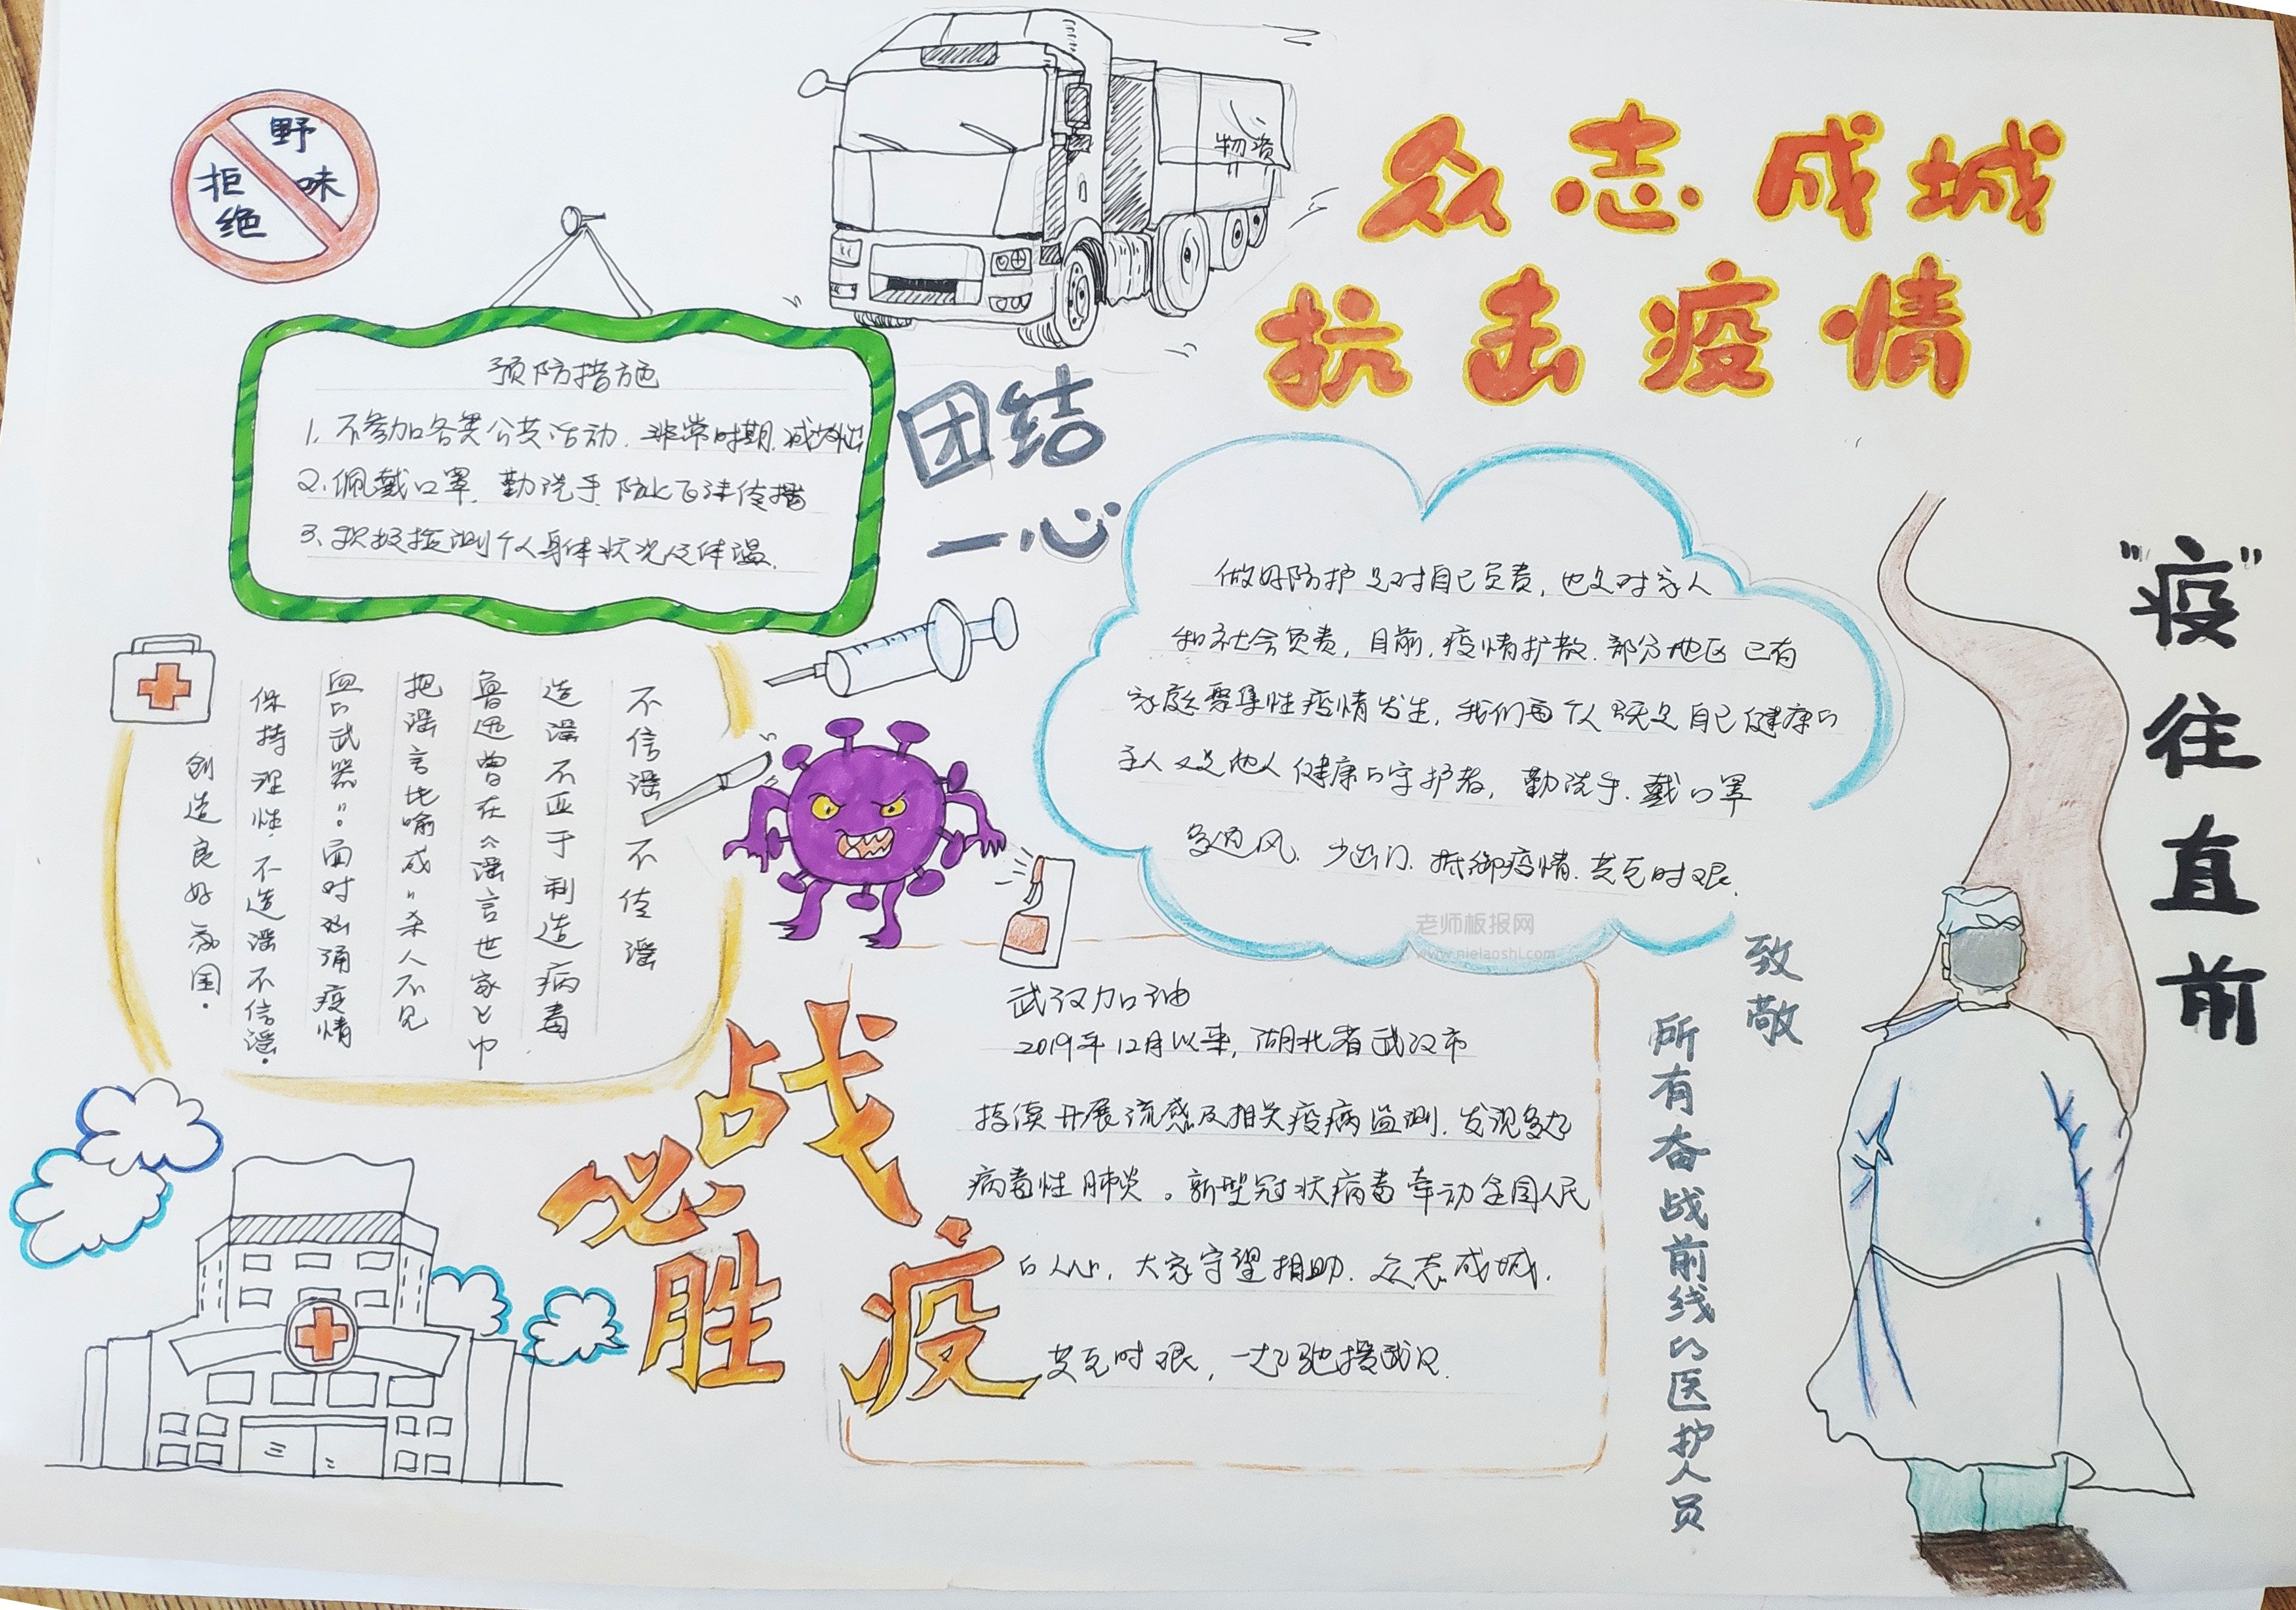 众志成城
抗击疫情
野味
拒绝
物资
预防措施
1. 不参加各类公共活动. 非常时期.
2. 佩戴口罩. 勤洗手 防止飞沫传播
3. 积极检测个人身体状况及体温.
团结
一心
做好防护是对自己负责, 也是对家人
和社会负责, 目前, 疫情扩散. 部分地区 已有
家庭聚集性疫情发生, 我们每个人既是自己健康的
主人又是他人健康的守护者, 勤洗手. 戴口罩
多通风. 少出门. 抵御疫情. 共克时艰.
老师板报网
www.nielaoshi.com
"疫"往直前
不信谣 不传谣
造谣不亚于制造病毒
鲁迅曾在《谣言世家》中
把谣言比喻成"杀人不见
血的武器"。面对汹涌疫情
保持理性, 不造谣不信谣.
创造良好氛围.
战
必
胜
疫
武汉加油
2019年12月以来, 湖北省武汉市
持续开展流感及相关疫病监测. 发现多起
病毒性肺炎。新型冠状病毒牵动全国人民
的人心, 大家守望相助. 众志成城.
共克时艰, 一起驰援武汉.
致敬
所有奋战前线的医护人员